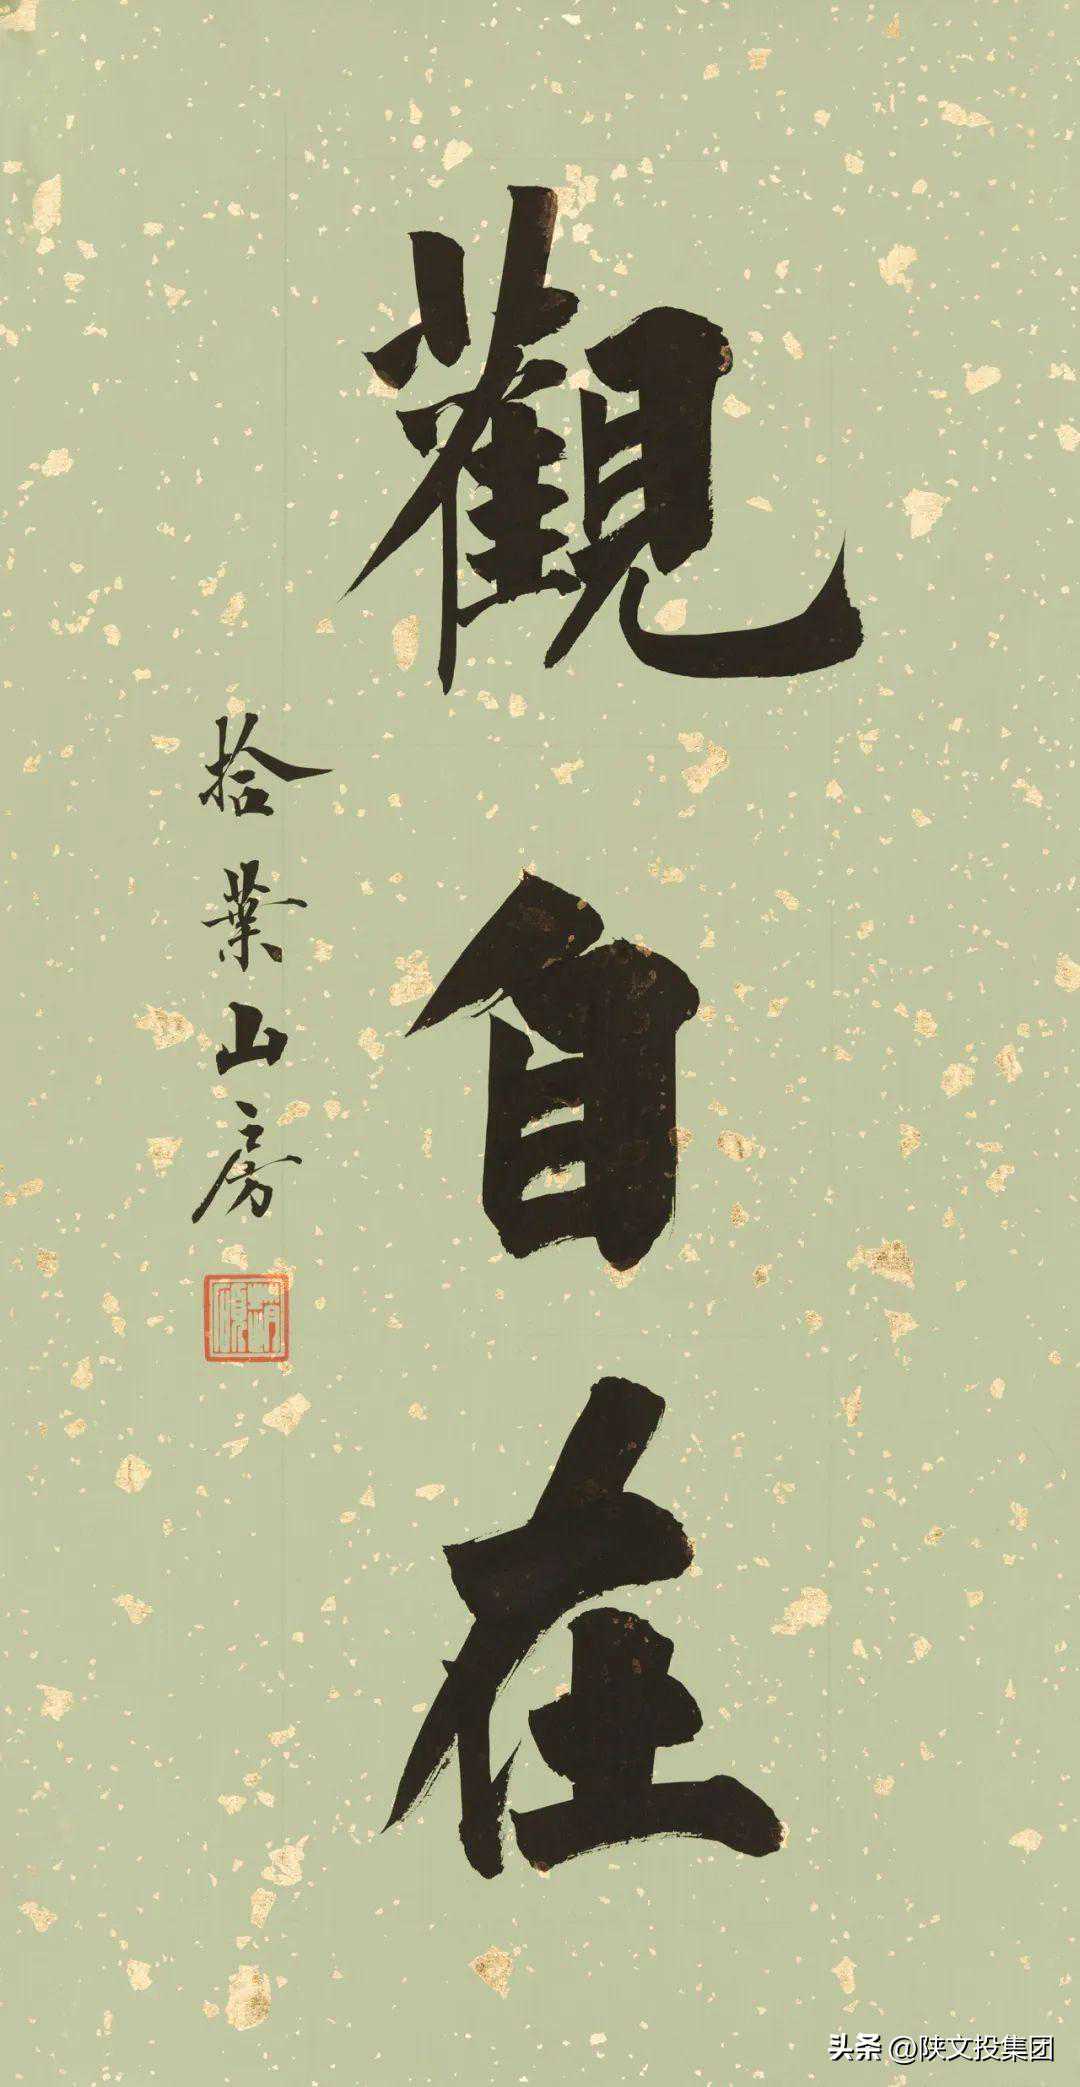 觀自在
拾葉山房
头条 @陕文投集团